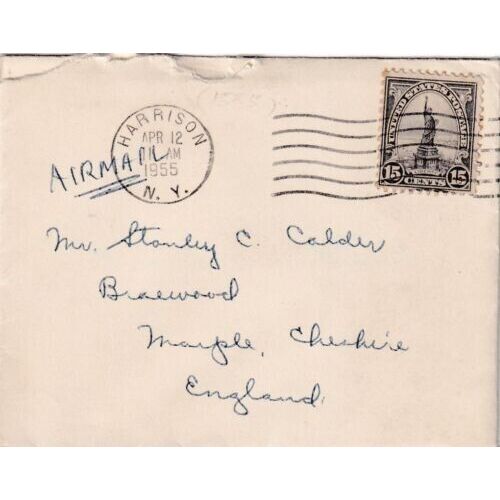 (1555)
HARRISON
APR 12
AM
1955
N. Y.
UNITED STATES POSTAGE
15 CENTS 15
AIRMAIL
Mr. Stanley C. Calder
Braewood
Marple, Cheshire
England.